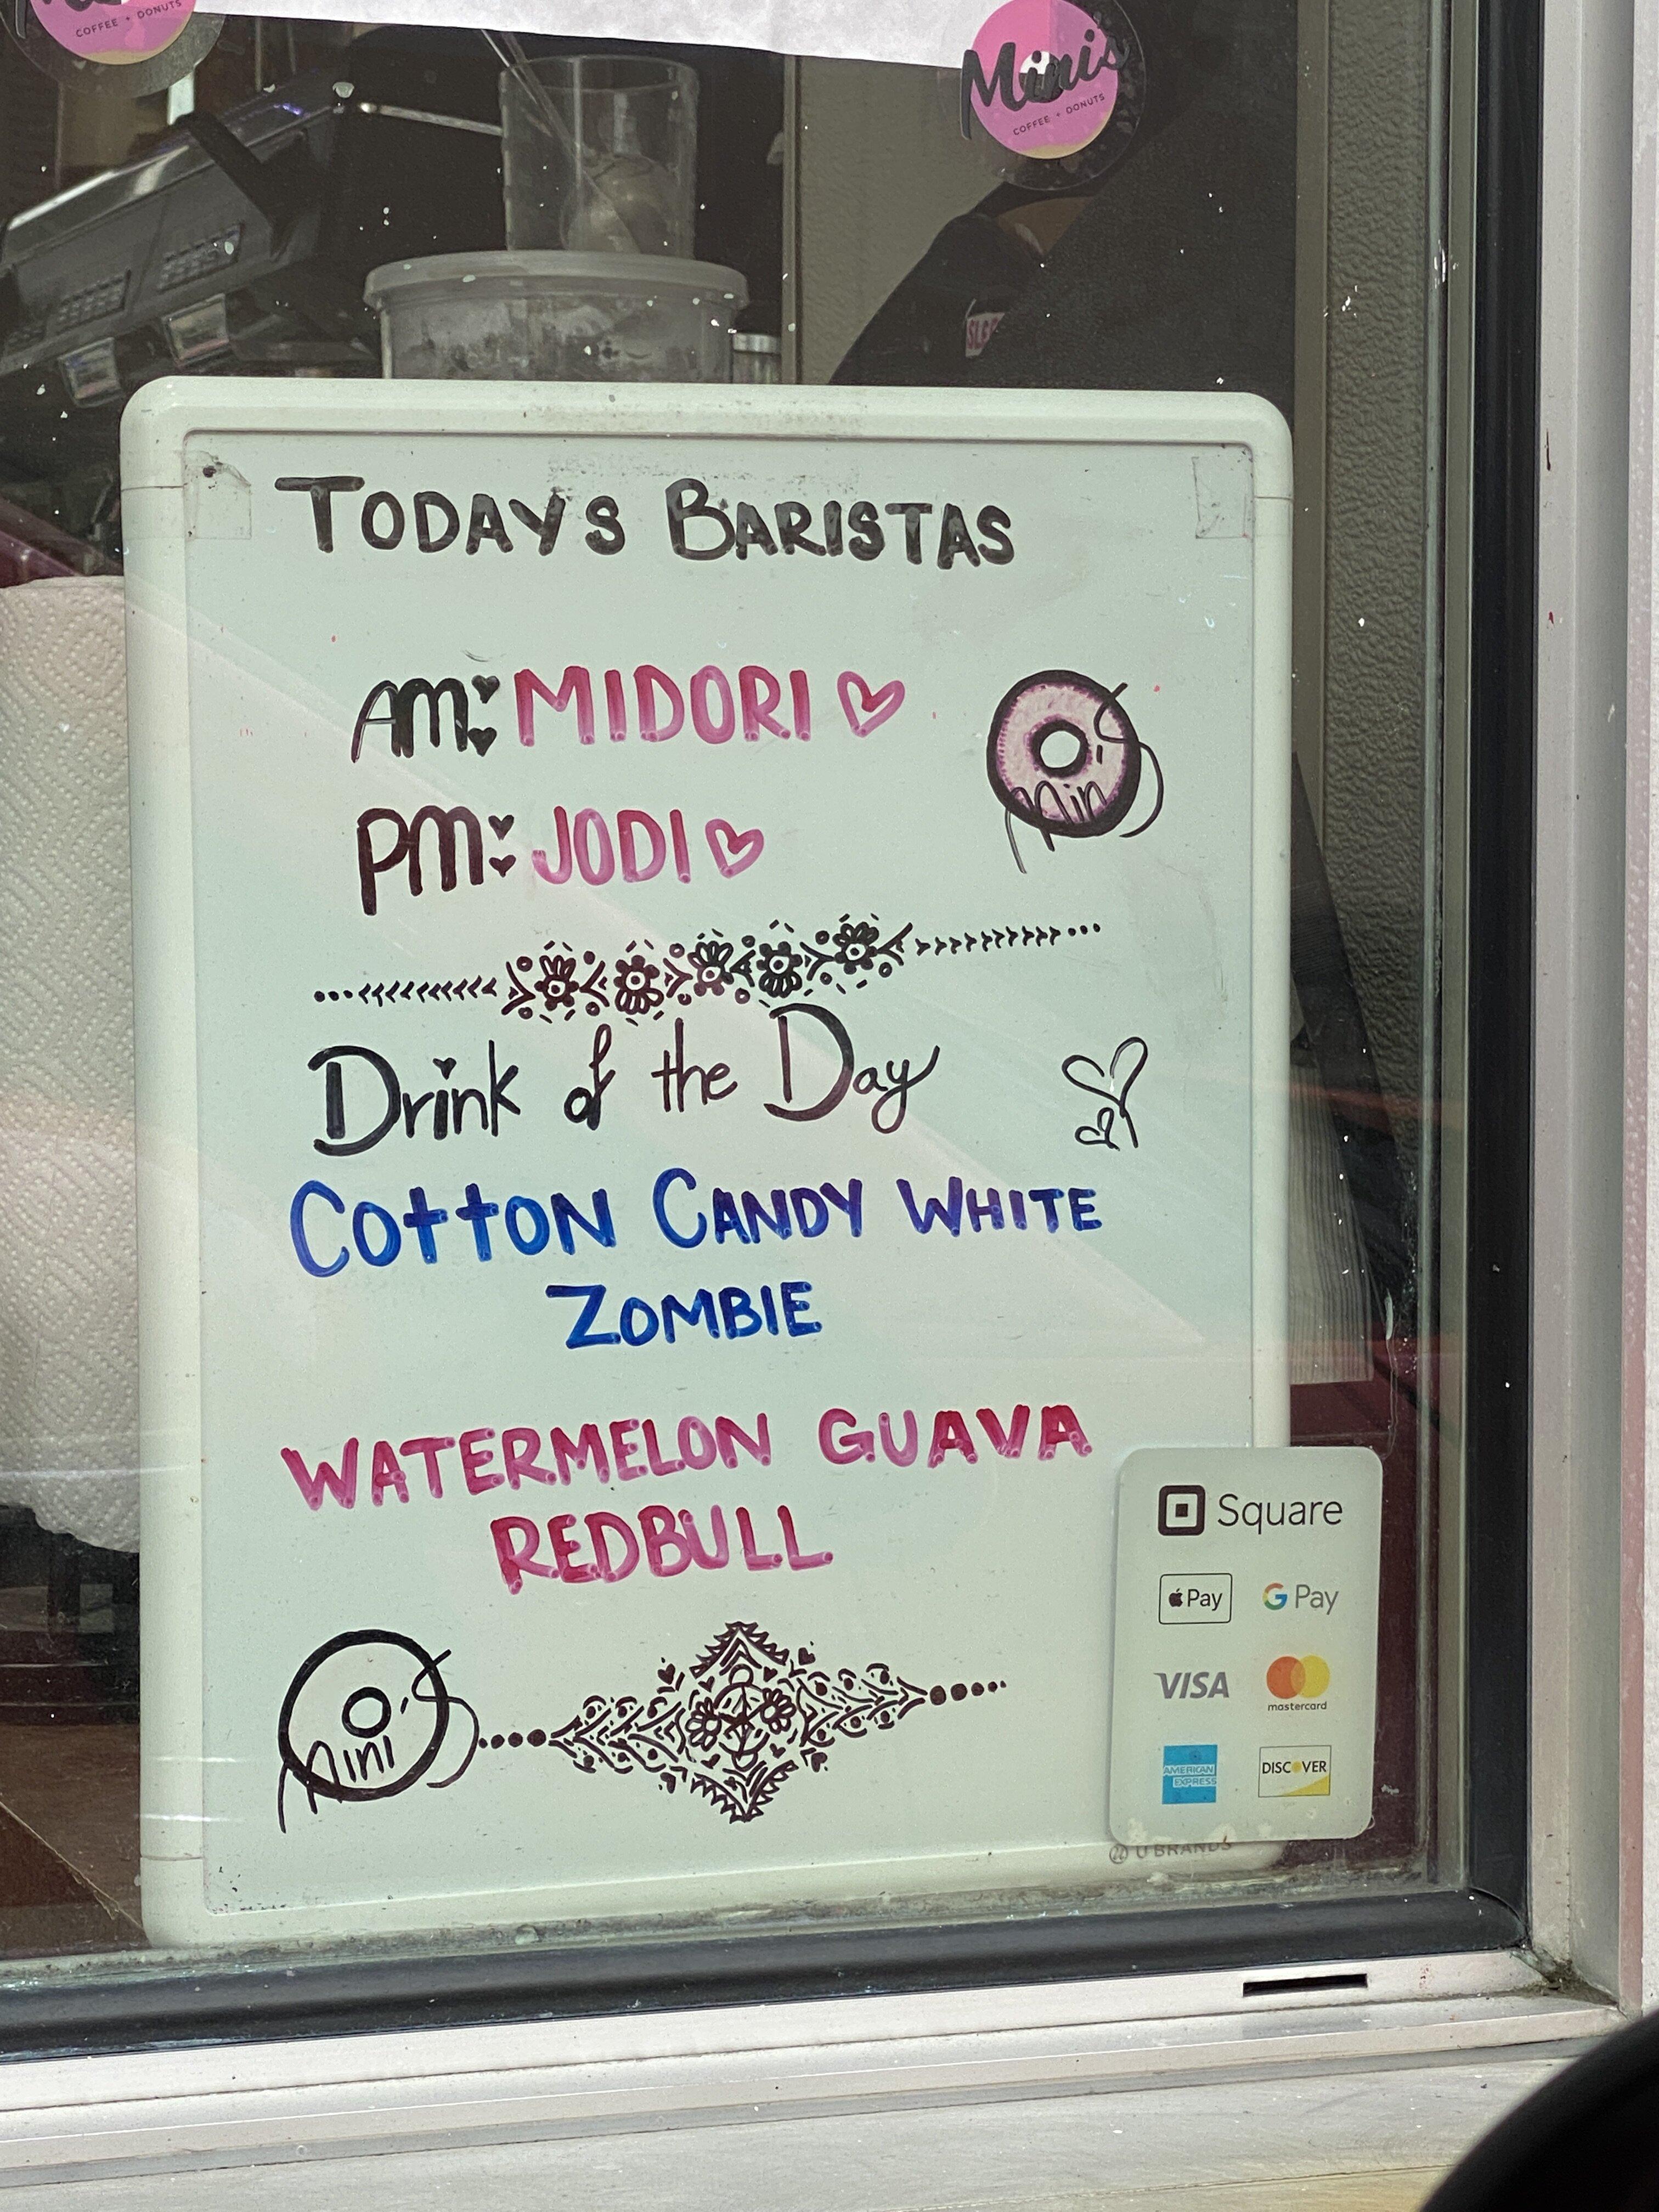 COFFEE + DONUTS
Minis
COFFEE + DONUTS
TODAYS BARISTAS
AM: MIDORI
PM: JODI
Mini
Drink of the Day
COTTON CANDY WHITE
ZOMBIE
WATERMELON GUAVA
REDBULL
Mini
Square
Pay
G Pay
VISA
mastercard
AMERICAN
EXPRESS
DISCOVER
U BRANDS